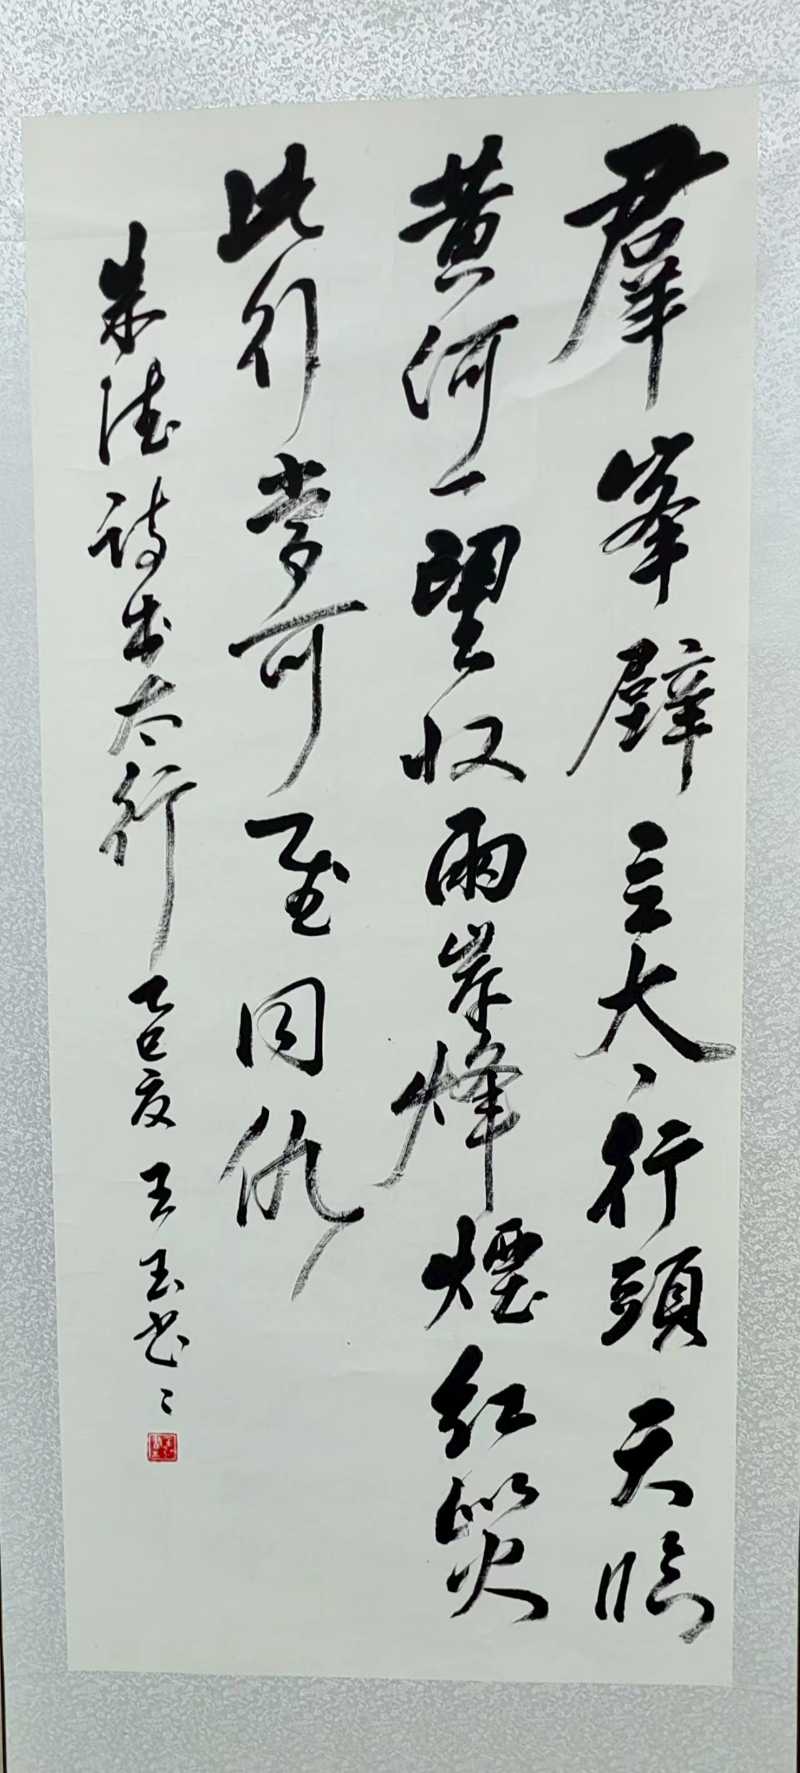 羣峯壁立太行頭天險
黄河一望收兩岸烽煙紅似火
此行當可慰同仇
朱德詩出太行 乙巳夏 王玉书